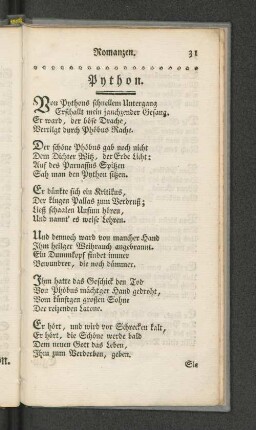 Romanzen. 31
Python.
Von Pythons schnellem Untergang
Erschallt mein jauchzender Gesang.
Er ward, der böse Drache,
Vertilgt durch Phöbus Rache.
Der schöne Phöbus gab noch nicht
Dem Dichter Witz, der Erde Licht:
Auf des Parnassus Spitzen
Sah man den Python sitzen.
Er dünkte sich ein Kritikus,
Der klugen Pallas zum Verdruß;
Ließ schaalen Unsinn hören,
Und nannt' es weise Lehren.
Und dennoch ward von mancher Hand
Ihm heilger Weihrauch angebrannt.
Ein Dummkopf findet immer
Bewundrer, die noch dümmer.
Ihm hatte das Geschick den Tod
Von Phöbus mächtger Hand gedroht,
Vom künftgen großen Sohne
Der reizenden Latone.
Er hört, und wird vor Schrecken kalt,
Er hört, die Schöne werde bald
Dem neuen Gott das Leben,
Ihm zum Verderben, geben.
Sie
on.